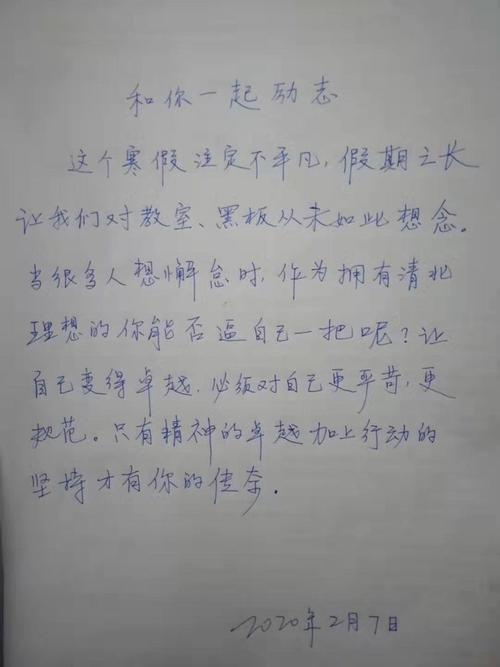 和你一起励志
这个寒假注定不平凡，假期之长
让我们对教室、黑板从未如此想念。
当很多人想懈怠时，作为拥有清北
理想的你能否逼自己一把呢？让
自己变得卓越，必须对自己更严苛，更
规范。只有精神的卓越加上行动的
坚持才有你的佳奈。
2020年2月7日